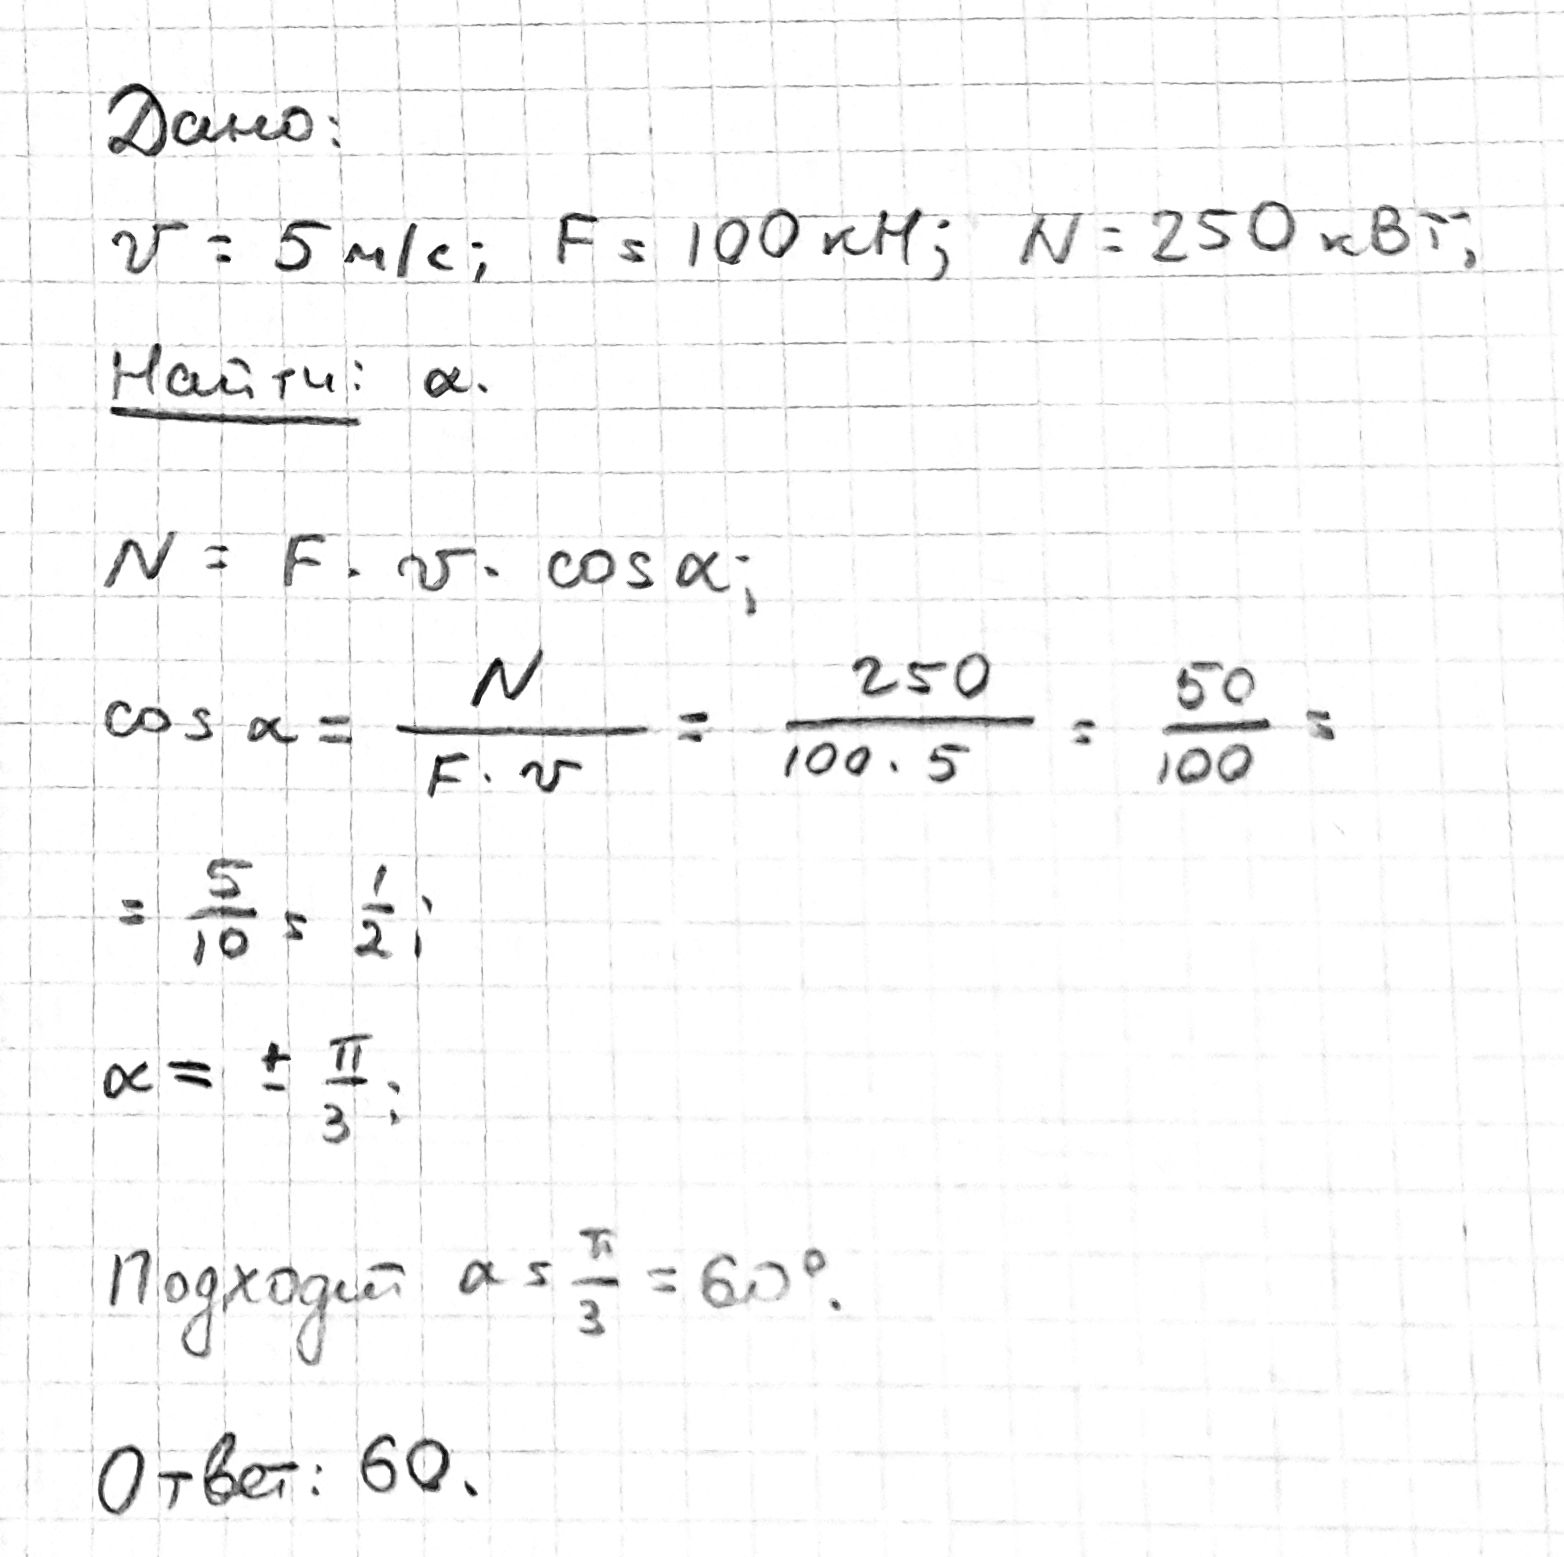 Дано:
v = 5 м/с; F = 100 кН; N = 250 кВт;
Найти: α.
N = F · v · cos α;
cos α = N / (F · v) = 250 / (100 · 5) = 50 / 100 =
= 5/10 = 1/2;
α = ± π/3;
Подходит α = π/3 = 60°.
Ответ: 60.